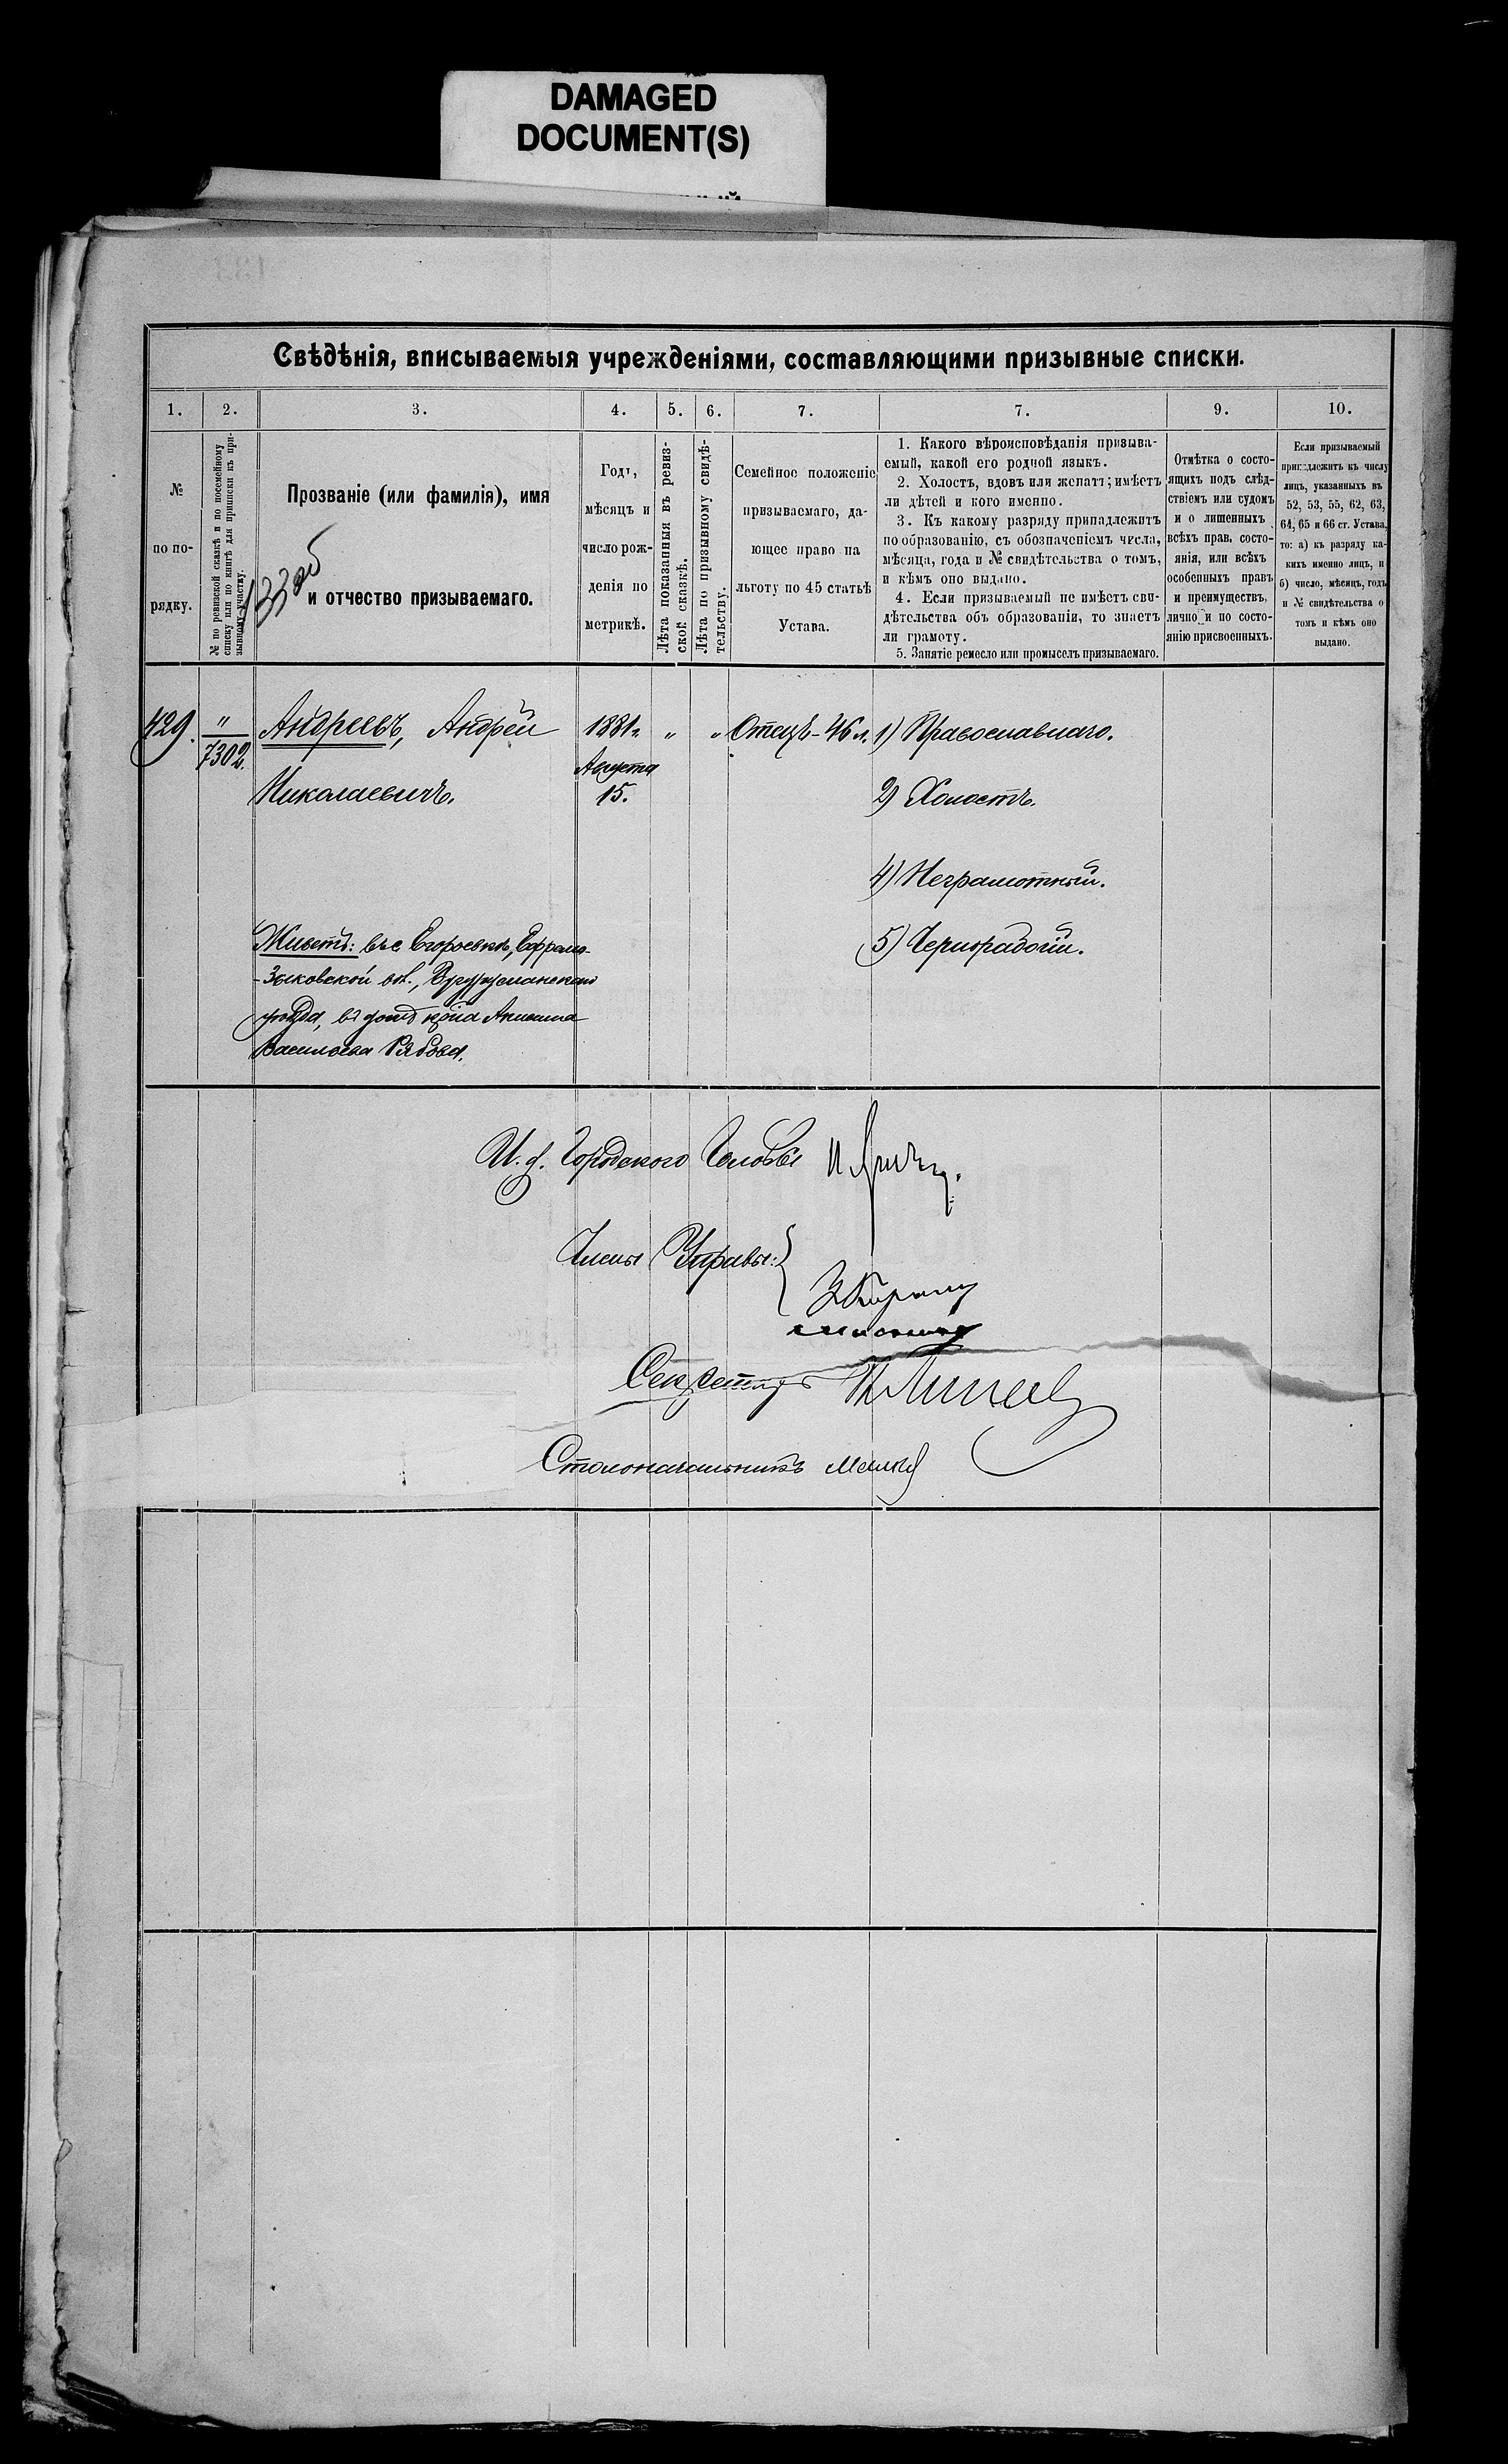 DAMAGED
DOCUMENT(S)
Свѣдѣнія, вписываемыя учрежденіями, составляющими призывные списки.
1.
2.
3.
4.
5.
6.
7.
7.
9.
10.
№
по по-
рядку.
№ по ревизской сказкѣ и по посемейному
списку или по книгѣ для приписки къ при-
зывному участку.
Прозваніе (или фамилія), имя
и отчество призываемаго.
Годъ,
мѣсяцъ и
число рож-
денія по
метрикѣ.
Лѣта показанныя въ ревиз-
ской сказкѣ.
Лѣта по призывному свидѣ-
тельству.
Семейное положеніе
призываемаго, да-
ющее право на
льготу по 45 статьѣ
Устава.
1. Какого вѣроисповѣданія призыва-
емый, какой его родной языкъ.
2. Холостъ, вдовъ или женатъ; имѣетъ
ли дѣтей и кого именно.
3. Къ какому разряду принадлежитъ
по образованію, съ обозначеніемъ числа,
мѣсяца, года и № свидѣтельства о томъ,
и кѣмъ оно выдано.
4. Если призываемый не имѣетъ сви-
дѣтельства объ образованіи, то знаетъ
ли грамоту.
5. Занятіе ремесло или промыселъ призываемаго.
Отмѣтка о состо-
ящихъ подъ слѣд-
ствіемъ или судомъ
и о лишенныхъ
всѣхъ прав, состо-
янія, или всѣхъ
особенныхъ правъ
и преимуществъ,
лично и по состо-
янію присвоенныхъ.
Если призываемый
принадлежитъ къ числу
лицъ, указанныхъ въ
52, 53, 55, 62, 63,
64, 65 и 66 ст. Устава,
то: а) къ разряду ка-
кихъ именно лицъ, и
б) число, мѣсяцъ, годъ
и № свидѣтельства о
томъ и кѣмъ оно
выдано.
429.
"
7302.
Андреевъ, Андрей
Николаевичъ.
1881г.
Августа
15.
"
"
Отецъ-46 л.
1) Православнаго.
2) Холостъ.
4) Неграмотный.
5) Чернорабочій.
Живетъ: въ с. Егоровкѣ,
-Зыковской вол., Бугурусланскаго
уѣзда, въ домѣ кр-на
Васильева Рябова.
И. д. Городского Головы
Члены Управы:
Секретарь
Столоначальникъ